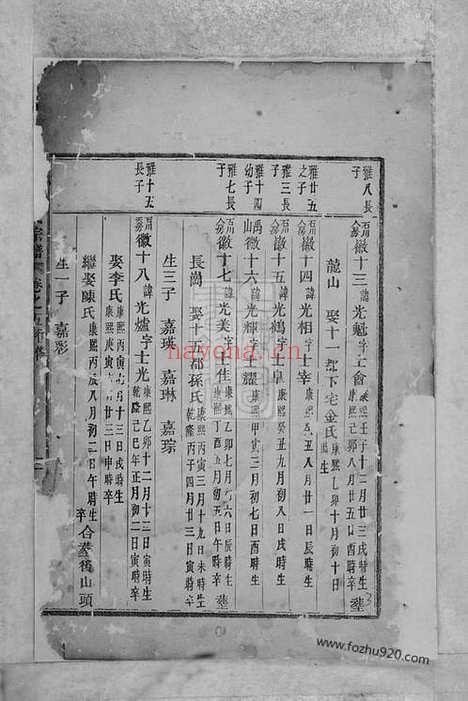 雅八長子
徽十三諱光魁字士會康熙壬子十二月廿三戌時生
康熙己卯八月廿五酉時卒 塟
龍山 娶十一都下宅金氏康熙乙卯十月初十日
時生
雅廿五之子
徽十四諱光相字士宰康熙 丑八月廿一日辰時生
雅三長子
徽十五諱光鶴字士皐康熙癸丑九月初八日戌時生
雅十四幼子
徽十六諱光輝字士耀康熙甲寅三月初七日酉時生
雅七長子
徽十七諱光美字士佳康熙乙卯七月 六日辰時生
丁酉五月初 日亥時卒 塟
長崗 娶十 都孫氏康熙丙寅三月十九日未時生
乾隆丙子四月廿三日寅時卒
生三子 嘉瑛 嘉琳 嘉琮
雅十五長子
徽十八諱光爐字士光康熙乙卯十二月十三日寅時生
乾隆己巳年正月初二日寅時卒
娶李氏康熙丙寅七月十三日戌時生
康熙庚寅 月廿三日申時卒
繼娶陳氏康熙丙辰八月初二日午時生
卒 合塟舊山頭
生一子 嘉彩
宗譜
hayona.cn
www.fozhu920.com